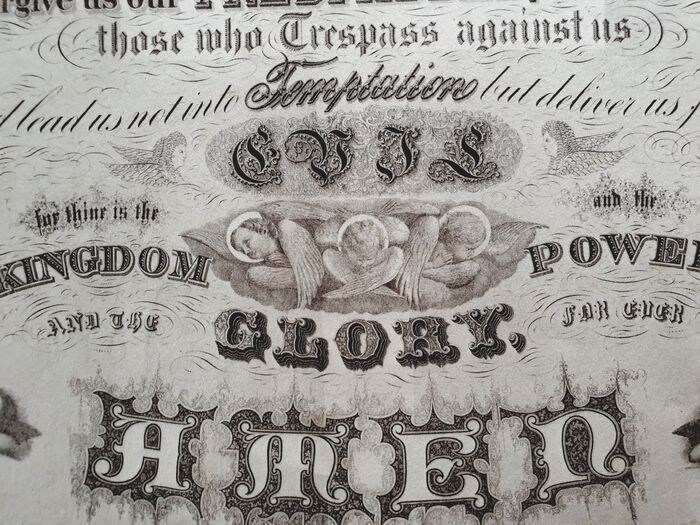 rgive us our
those who Trespass against us
lead us not into Temptation but deliver us
EVIL
for thine is the
KINGDOM
and the
POWE
AND THE
GLORY,
FOR EVER
AMEN